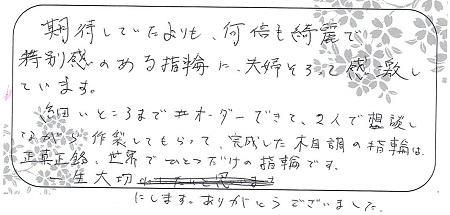 期待していたよりも、何倍も綺麗で
特別感のある指輪に、夫婦そろって感激し
ています。
細いところまでオーダーできて、2人で想談し
ながら作製してもらって、完成した木目調の指輪は
正真正銘、世界でひとつだけの指輪です。
一生大切
にします。ありがとうございました。